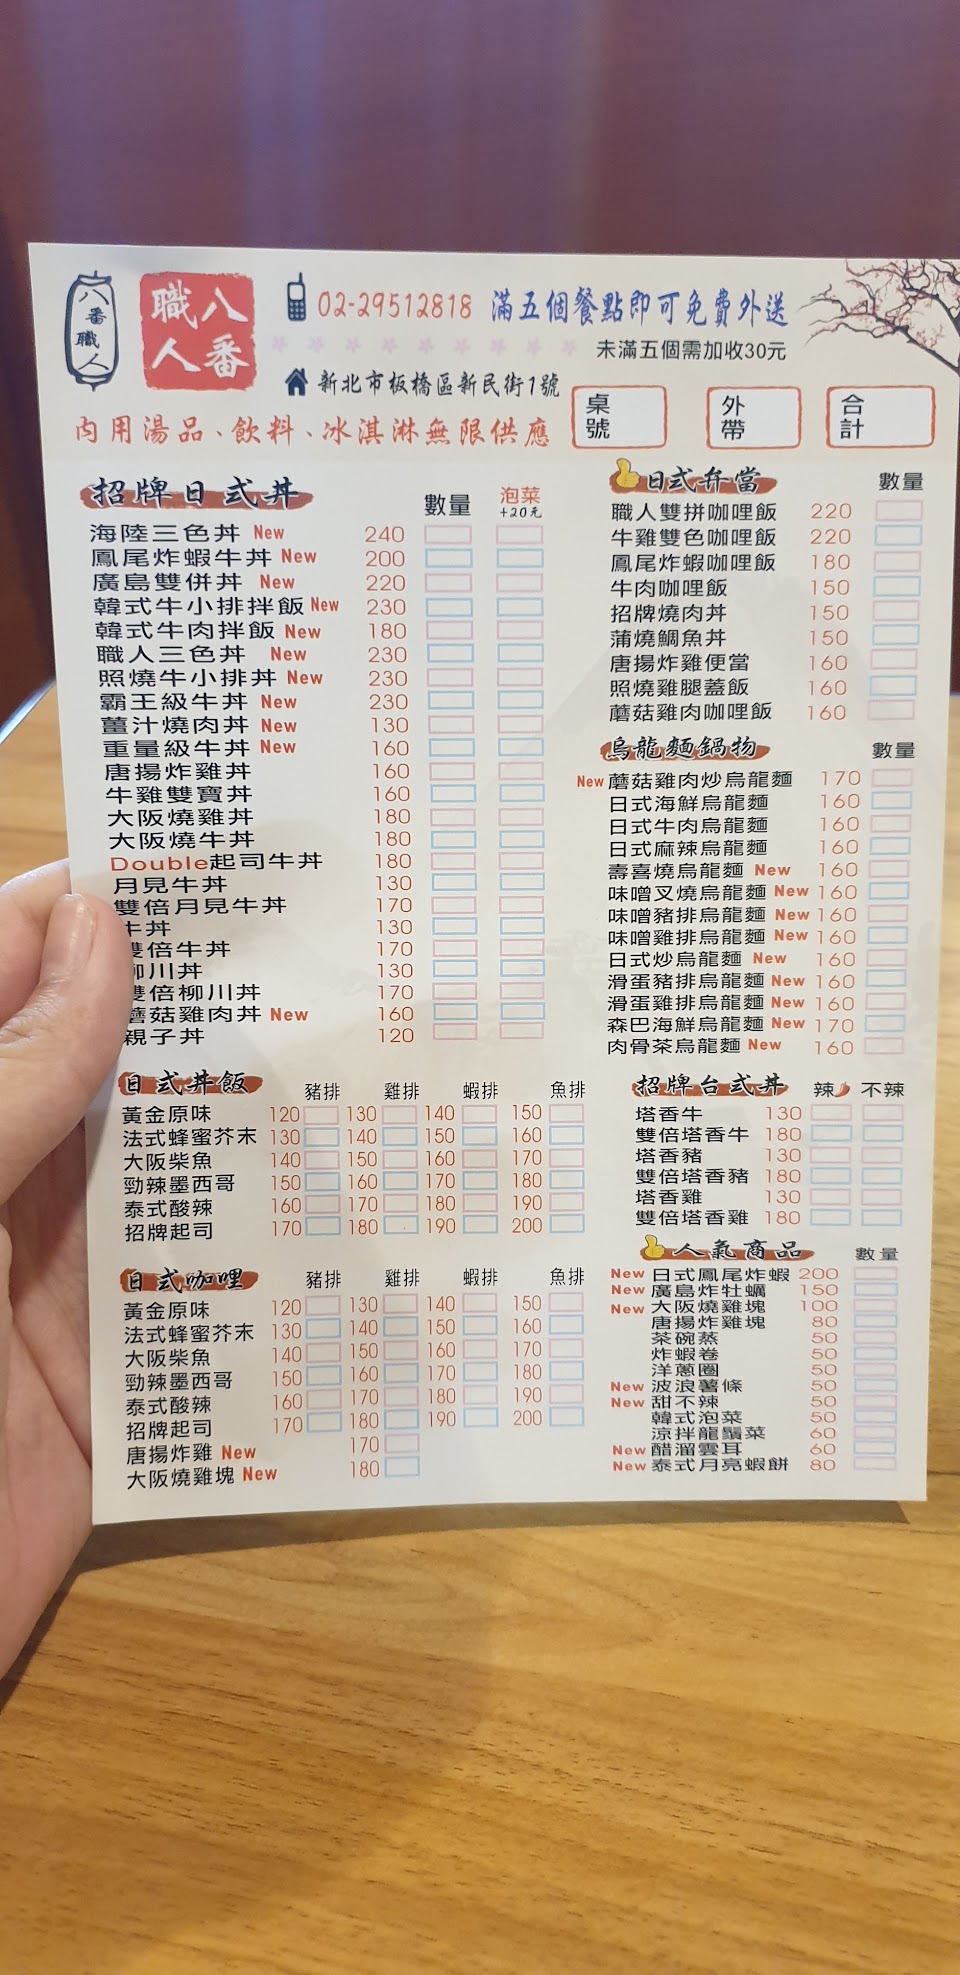 八番職人
職八
人番
02-29512818 滿五個餐點即可免費外送
未滿五個需加收30元
新北市板橋區新民街1號
內用湯品、飲料、冰淇淋無限供應
桌號 外帶 合計
招牌日式丼 數量 泡菜+20元
海陸三色丼 New 240
鳳尾炸蝦牛丼 New 200
廣島雙併丼 New 220
韓式牛小排拌飯 New 230
韓式牛肉拌飯 New 180
職人三色丼 New 230
照燒牛小排丼 New 230
霸王級牛丼 New 230
薑汁燒肉丼 New 130
重量級牛丼 New 160
唐揚炸雞丼 160
牛雞雙寶丼 160
大阪燒雞丼 180
大阪燒牛丼 180
Double起司牛丼 180
月見牛丼 130
雙倍月見牛丼 170
牛丼 130
雙倍牛丼 170
柳川丼 130
雙倍柳川丼 170
蘑菇雞肉丼 New 160
親子丼 120
日式丼飯 豬排 雞排 蝦排 魚排
黃金原味 120 130 140 150
法式蜂蜜芥末 130 140 150 160
大阪柴魚 140 150 160 170
勁辣墨西哥 150 160 170 180
泰式酸辣 160 170 180 190
招牌起司 170 180 190 200
日式咖哩 豬排 雞排 蝦排 魚排
黃金原味 120 130 140 150
法式蜂蜜芥末 130 140 150 160
大阪柴魚 140 150 160 170
勁辣墨西哥 150 160 170 180
泰式酸辣 160 170 180 190
招牌起司 170 180 190 200
唐揚炸雞 New 170
大阪燒雞塊 New 180
日式弁當 數量
職人雙拼咖哩飯 220
牛雞雙色咖哩飯 220
鳳尾炸蝦咖哩飯 180
牛肉咖哩飯 150
招牌燒肉丼 150
蒲燒鯛魚丼 150
唐揚炸雞便當 160
照燒雞腿蓋飯 160
蘑菇雞肉咖哩飯 160
烏龍麵鍋物 數量
New 蘑菇雞肉炒烏龍麵 170
日式海鮮烏龍麵 160
日式牛肉烏龍麵 160
日式麻辣烏龍麵 160
壽喜燒烏龍麵 New 160
味噌叉燒烏龍麵 New 160
味噌豬排烏龍麵 New 160
味噌雞排烏龍麵 New 160
日式炒烏龍麵 New 160
滑蛋豬排烏龍麵 New 160
滑蛋雞排烏龍麵 New 160
森巴海鮮烏龍麵 New 170
肉骨茶烏龍麵 New 160
招牌台式丼 辣 不辣
塔香牛 130
雙倍塔香牛 180
塔香豬 130
雙倍塔香豬 180
塔香雞 130
雙倍塔香雞 180
人氣商品 數量
New 日式鳳尾炸蝦 200
New 廣島炸牡蠣 150
New 大阪燒雞塊 100
唐揚炸雞塊 80
茶碗蒸 50
炸蝦卷 50
洋蔥圈 50
New 波浪薯條 50
New 甜不辣 50
韓式泡菜 50
涼拌龍鬚菜 60
New 醋溜雲耳 60
New 泰式月亮蝦餅 80